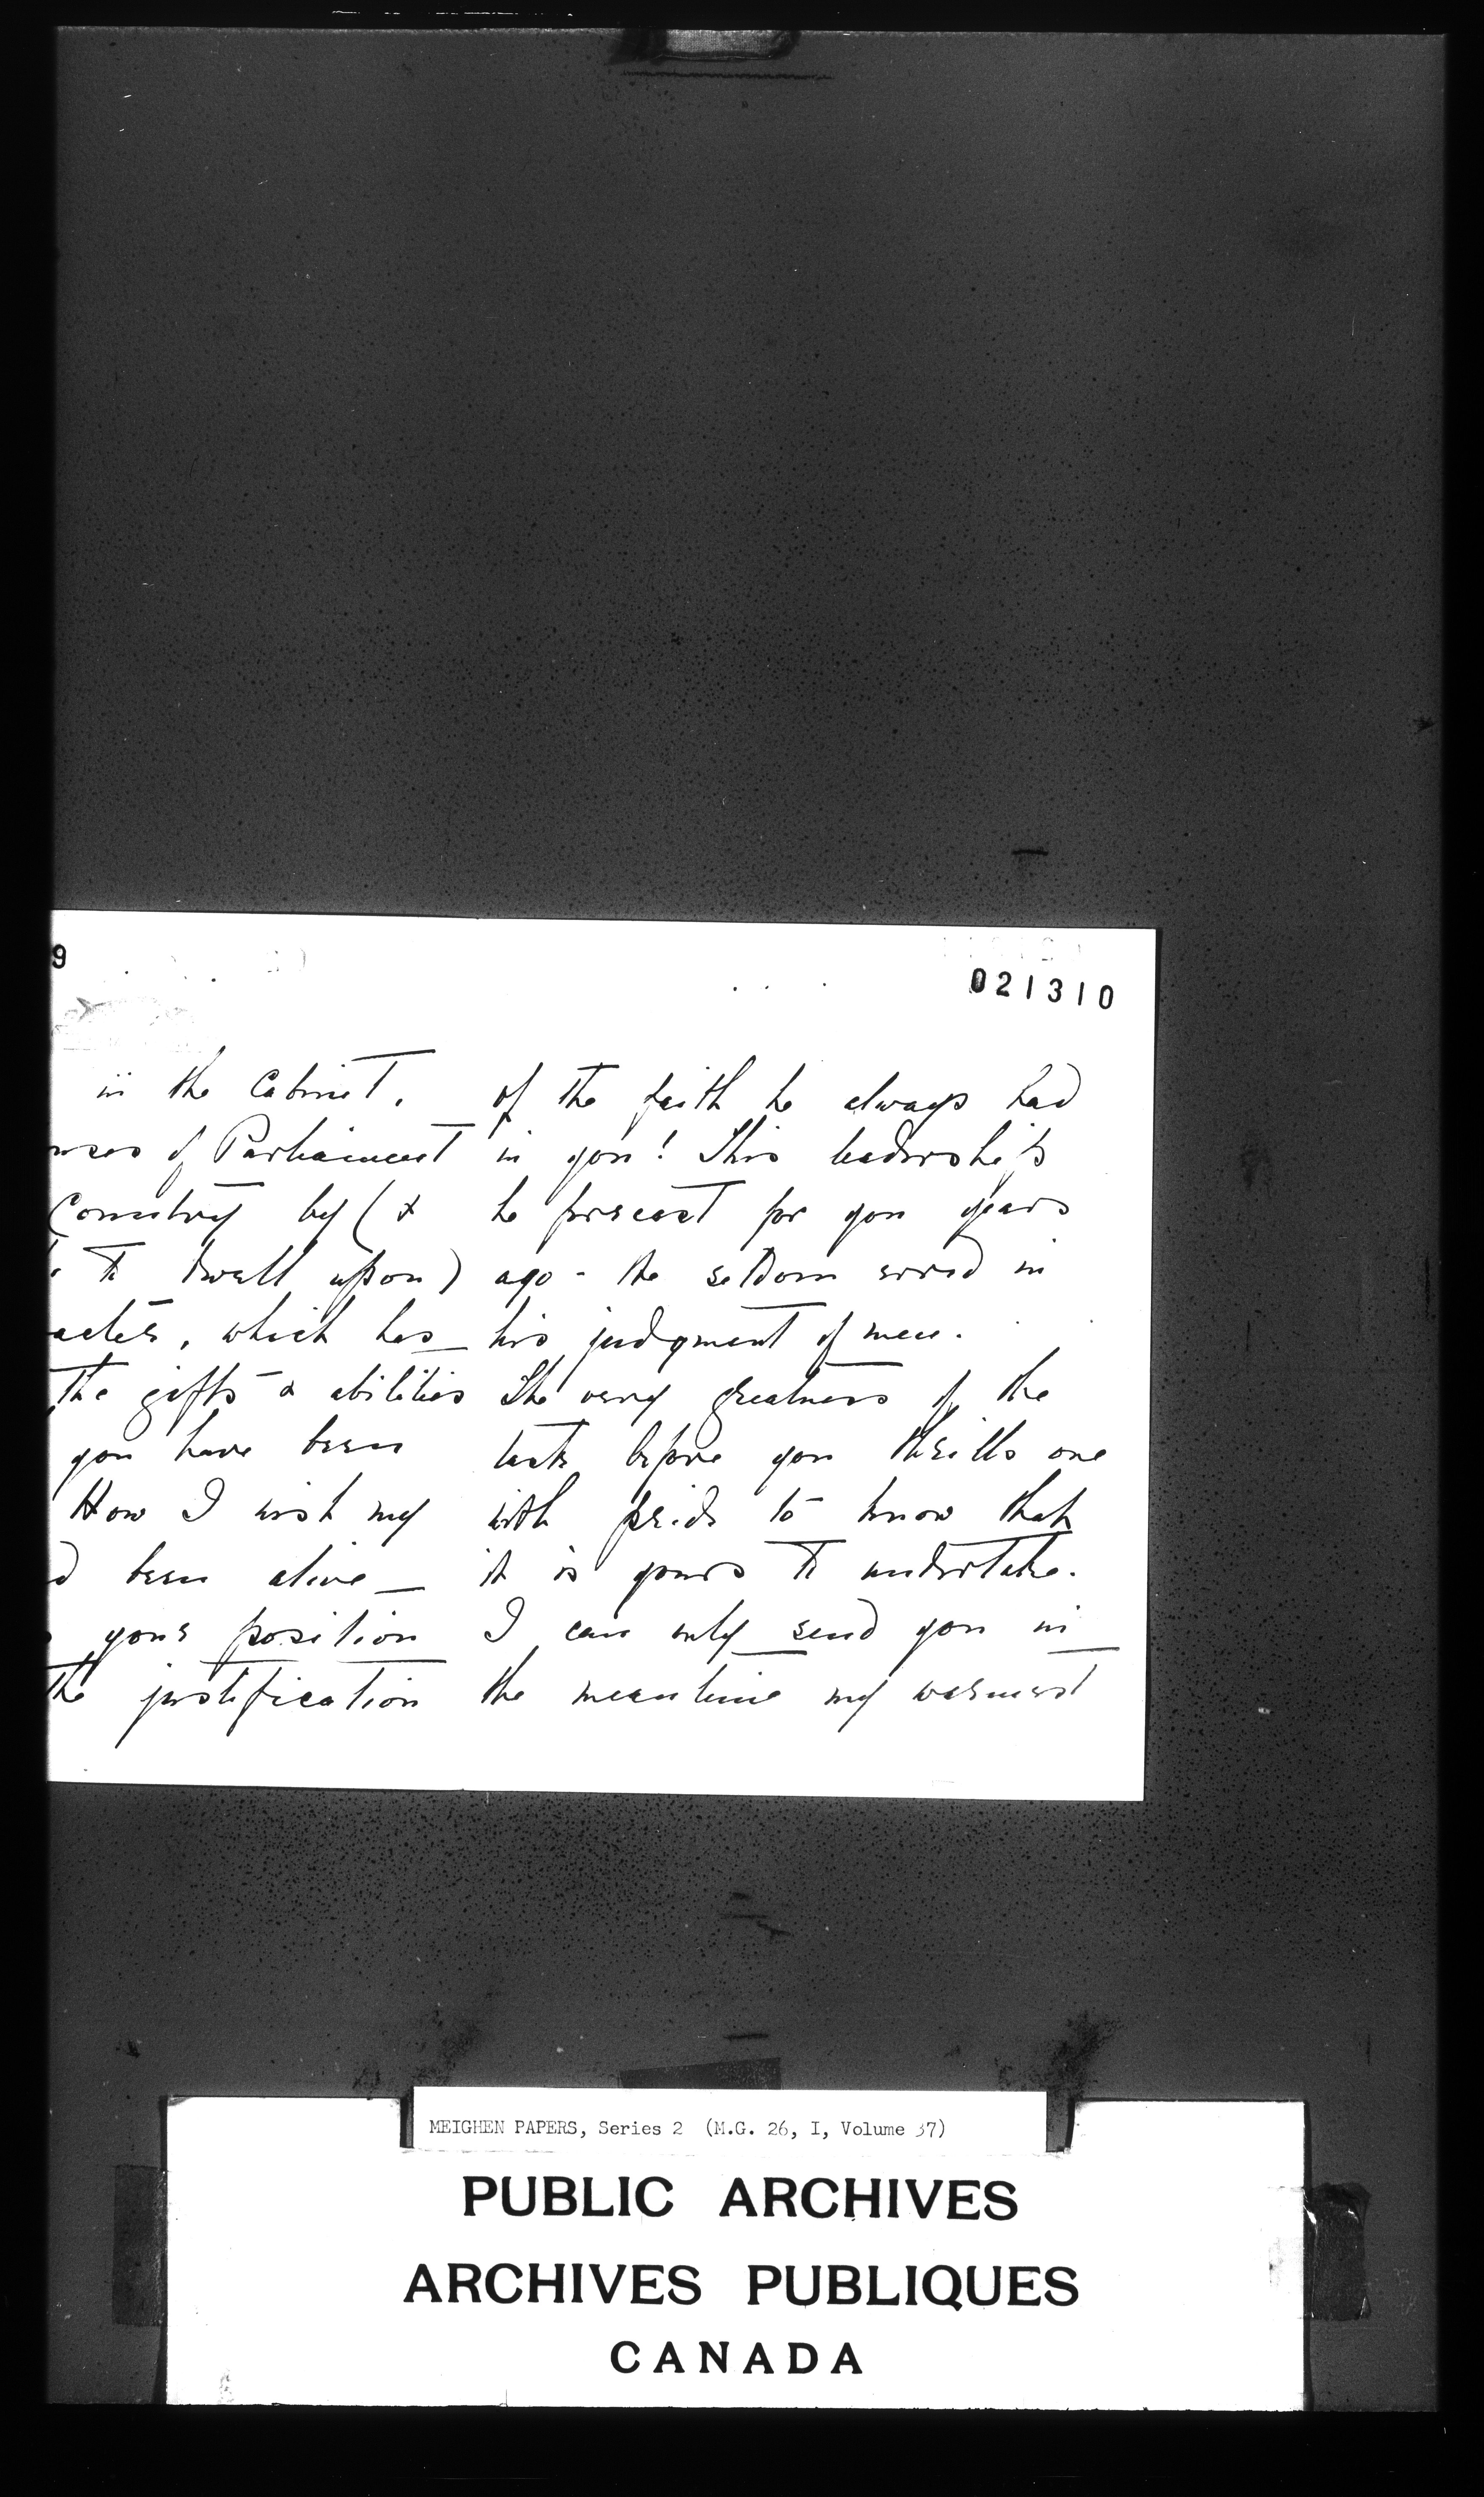 9
021310
in the Cabinet.
uses of Parliament
Country by (&
to dwell upon)
acter, which has
the gifts & abilities
you have been
How I wish my
d been alive —
your position
the justification
of the faith he always had
in you! This leadership
he forecast for you years
ago - He seldom erred in
his judgment of men.
The very greatness of the
task before you thrills one
with pride to know that
it is yours to undertake.
I can only send you in
the meantime my warmest
MEIGHEN PAPERS, Series 2 (M.G. 26, I, Volume 37)
PUBLIC ARCHIVES
ARCHIVES PUBLIQUES
CANADA